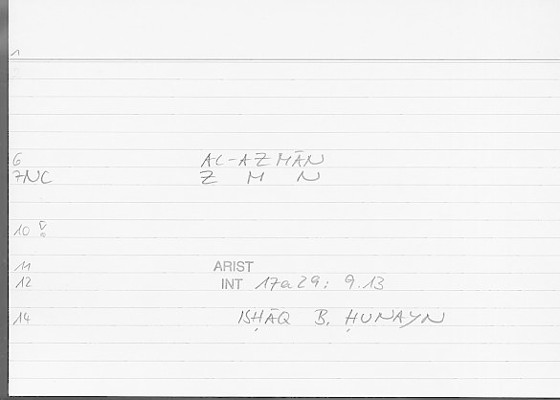 1
6 AL-AZMĀN
7NC Z M N
10
11 ARIST
12 INT 17a29: 9.13
14 ISḤĀQ B. ḤUNAYN